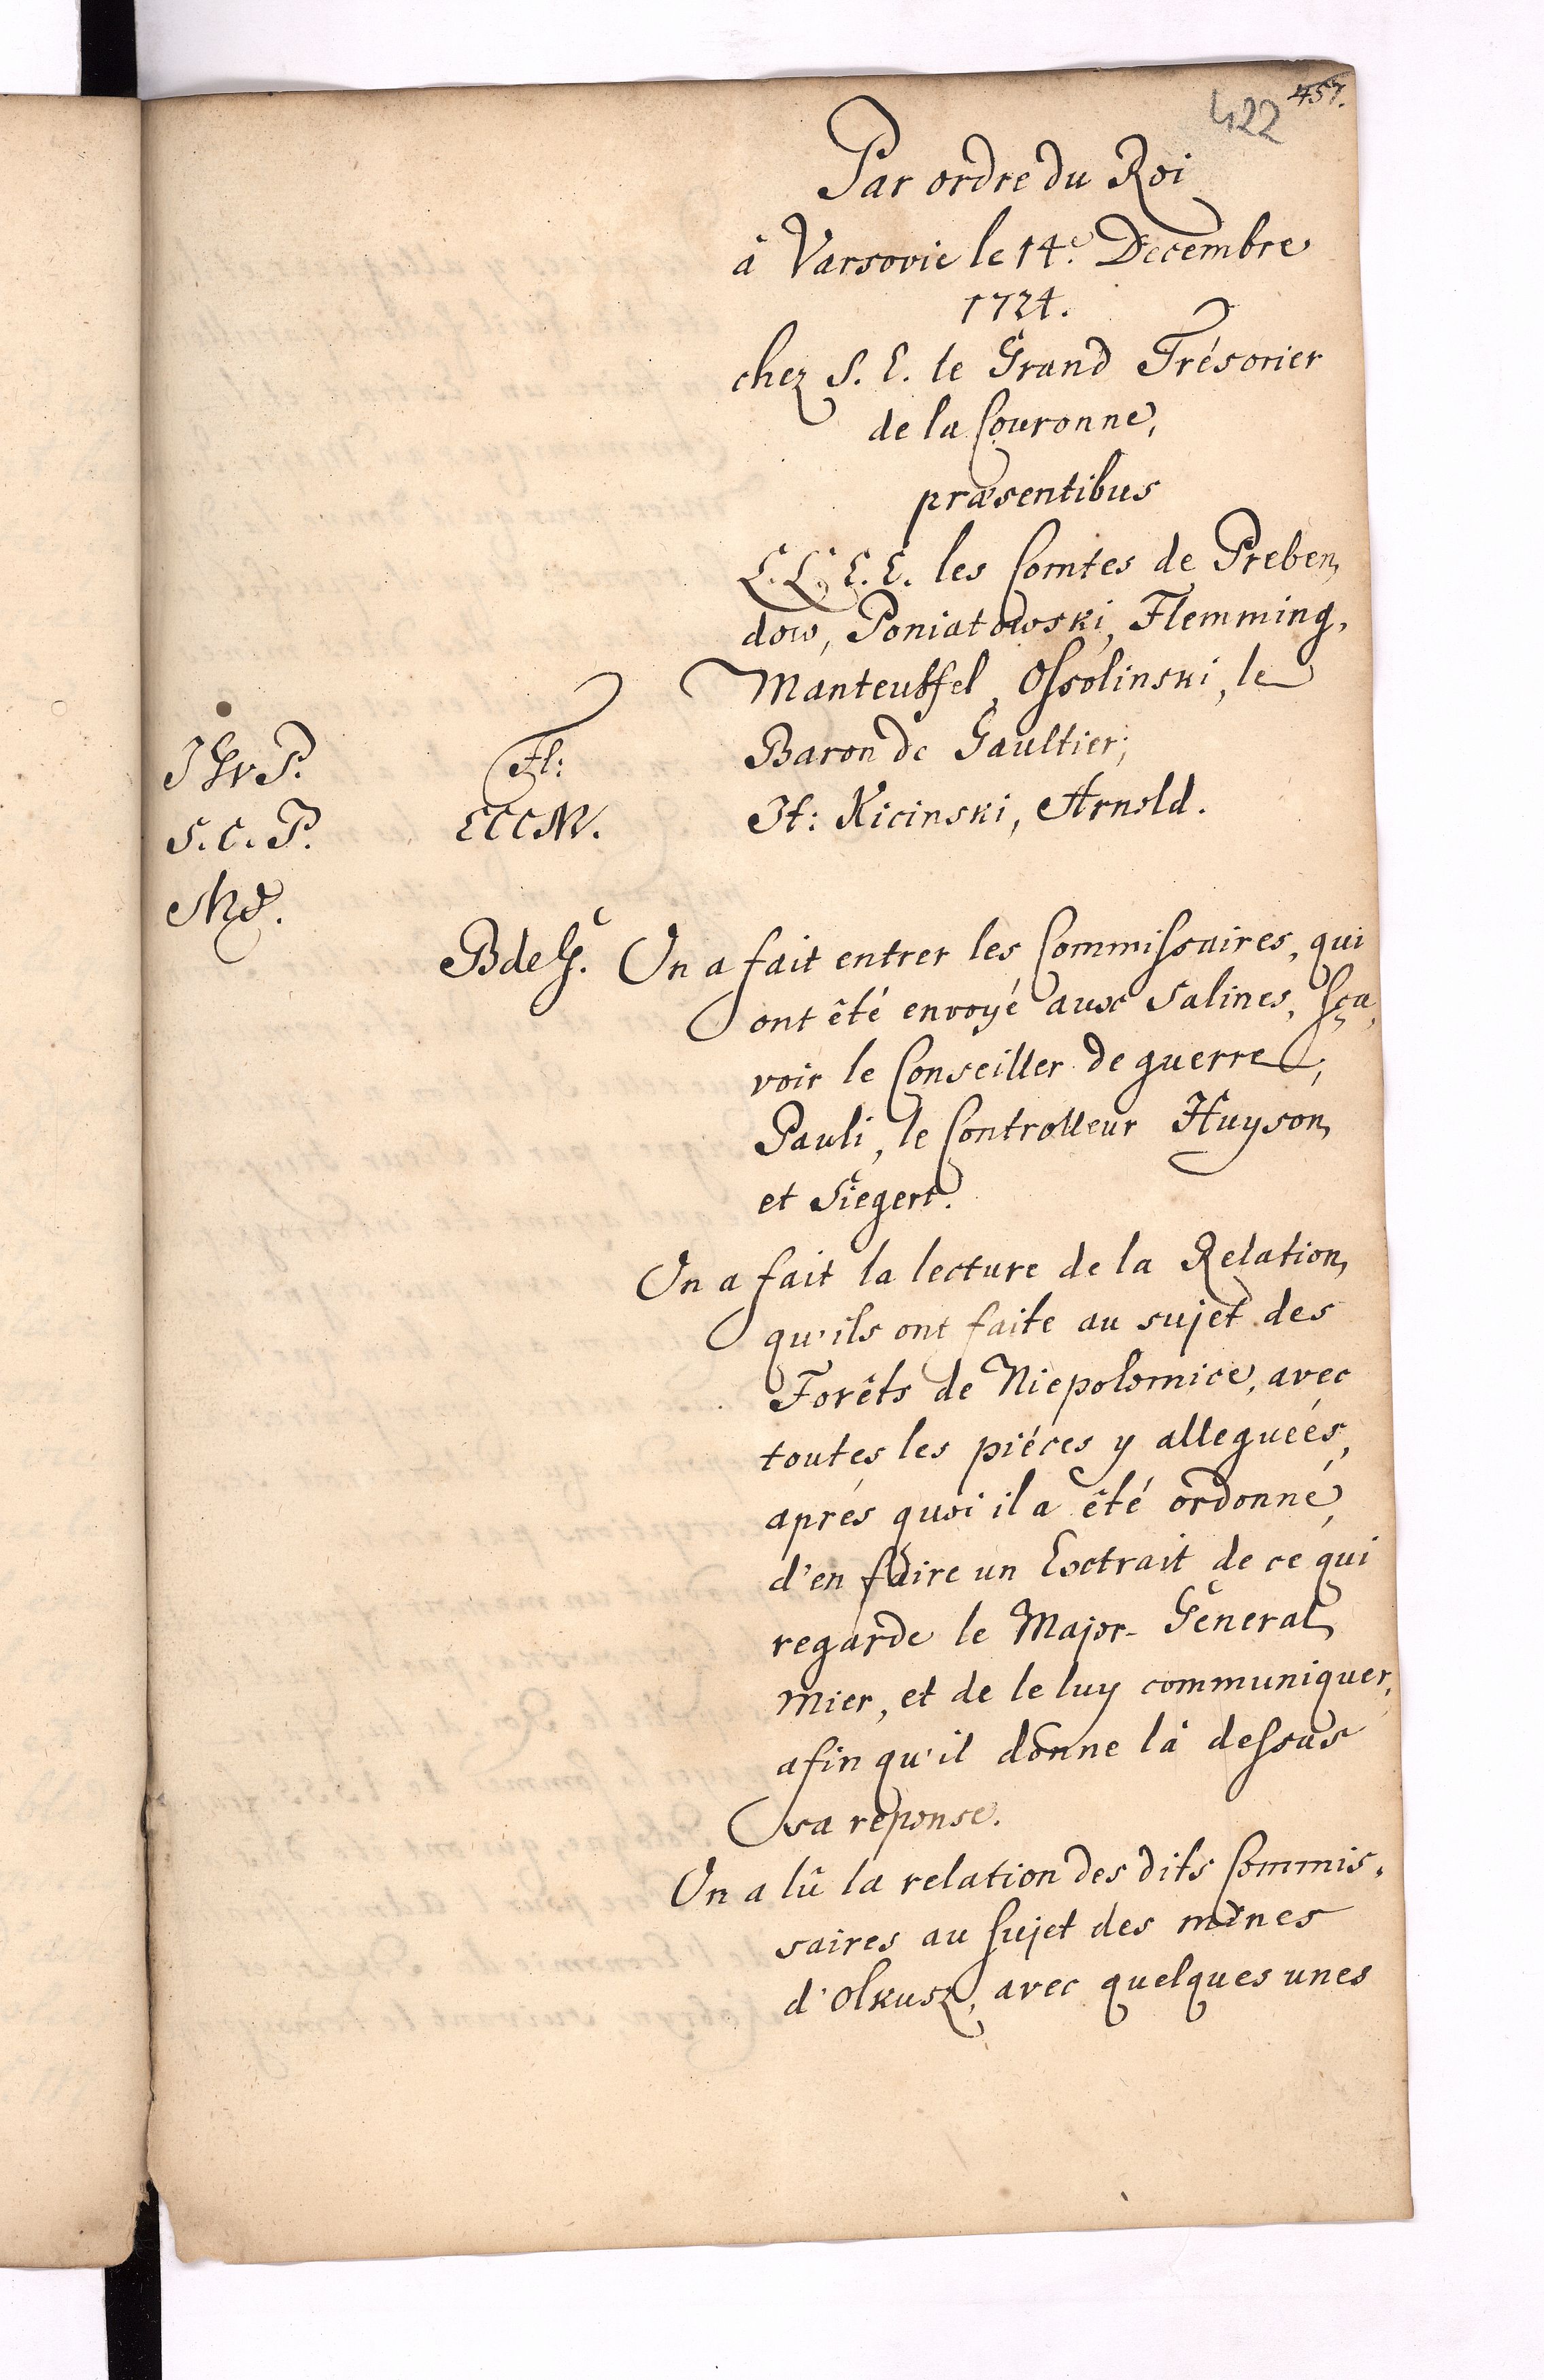 457.
422
Par ordre du Roi
à Varsovie le 14.e Decembre
1724.
chez S. E. le Grand Trésorier
de la Couronne,
præsentibus
L.L. E.E. les Comtes de Preben,
dow, Poniatowski, Flemming,
Manteuffel, Ossolinski, le
Baron de Gaultier;
It: Kicinski, Arnold.
J Gv P.
S. C. P.
Fl:
ECCM.
BdeG.
On a fait entrer les Commissaires, qui
ont êté envoyé aux Salines, sça,
voir le Conseiller de guerre,
Pauli, le Controlleur Huyson,
et Siegert.
On a fait la lecture de la Relation,
qu'ils ont faite au sujet des
Forêts de Niepolomice, avec
toutes les piéces y alleguées,
aprés quoi il a êté ordonné,
d'en faire un Extrait de ce qui
regarde le Major-General
Mier, et de le luy communiquer,
afin qu'il donne là dessus
sa reponse.
On a lû la relation des dits Commis,
saires au sujet des mines
d'Olkusz, avec quelques unes